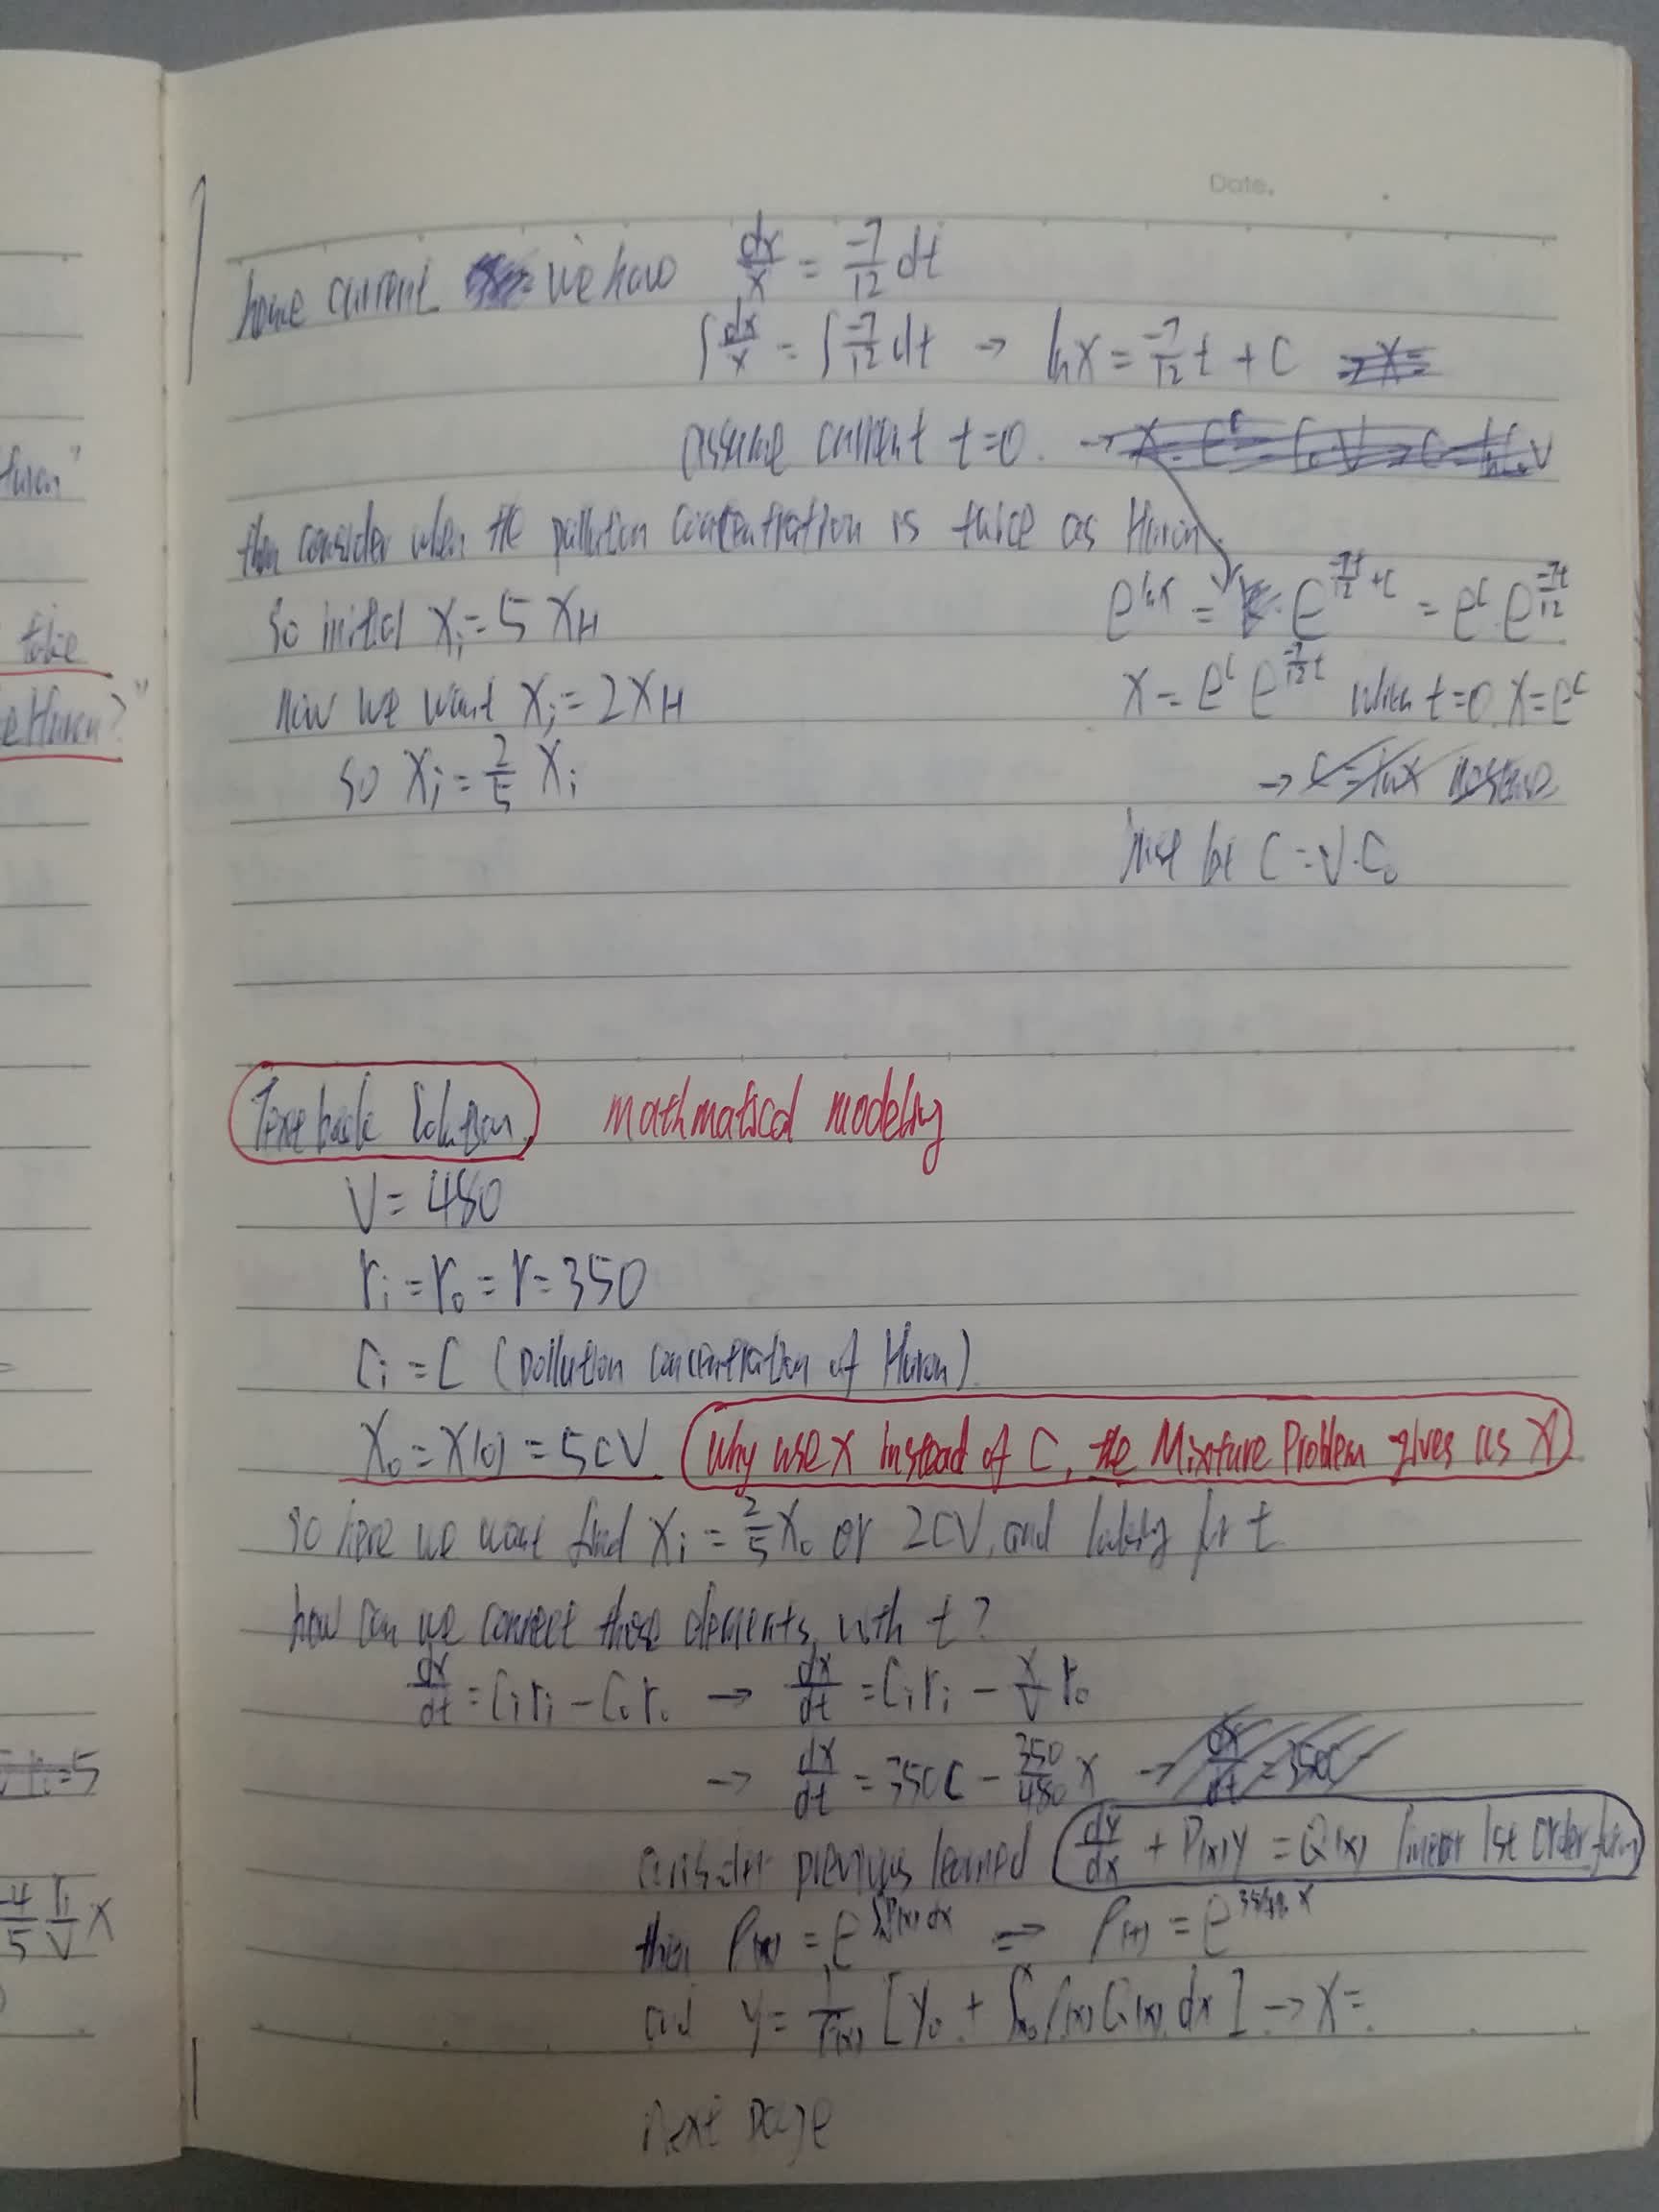 Date.
hence current we have dx/x = -7/12 dt
∫dx/x = ∫-7/12 dt → ln x = -7/12 t + C
assume current t=0. →
then consider when the pollution concentration is twice as Huron.
so initial Xi = 5 XH
e^lnx = e^(-7t/12 + c) = e^c e^(-7t/12)
now we want Xi = 2XH
X = e^c e^(-7/12 t) when t=0. X=e^c
so Xi = 2/5 Xi
→
C = V·C₀
Huron"
take
e Huron?"
Textbook Solution. mathmatical modeling
V = 480
ri = r₀ = r = 350
Ci = C (Pollution concentration of Huron)
X₀ = X(0) = 5CV (Why use X instead of C, the Mixture Problem gives us X)
so here we want find Xi = 2/5 X₀ or 2CV, and looking for t
how can we connect these elements with t?
dx/dt = Ci ri - C₀ r₀ → dx/dt = Ci ri - x/V r₀
→ dx/dt = 350C - 350/480 X → dx/dt = 350C -
consider previous learned dy/dx + P(x)y = Q(x) linear 1st order form
then ρ(x) = e^∫P(x)dx ⇒ ρ(t) = e
and y = 1/ρ(x) [y₀ + ∫x₀ ρ(x)Q(x) dx] → X =
next page
=5
-4/5 ri/V X